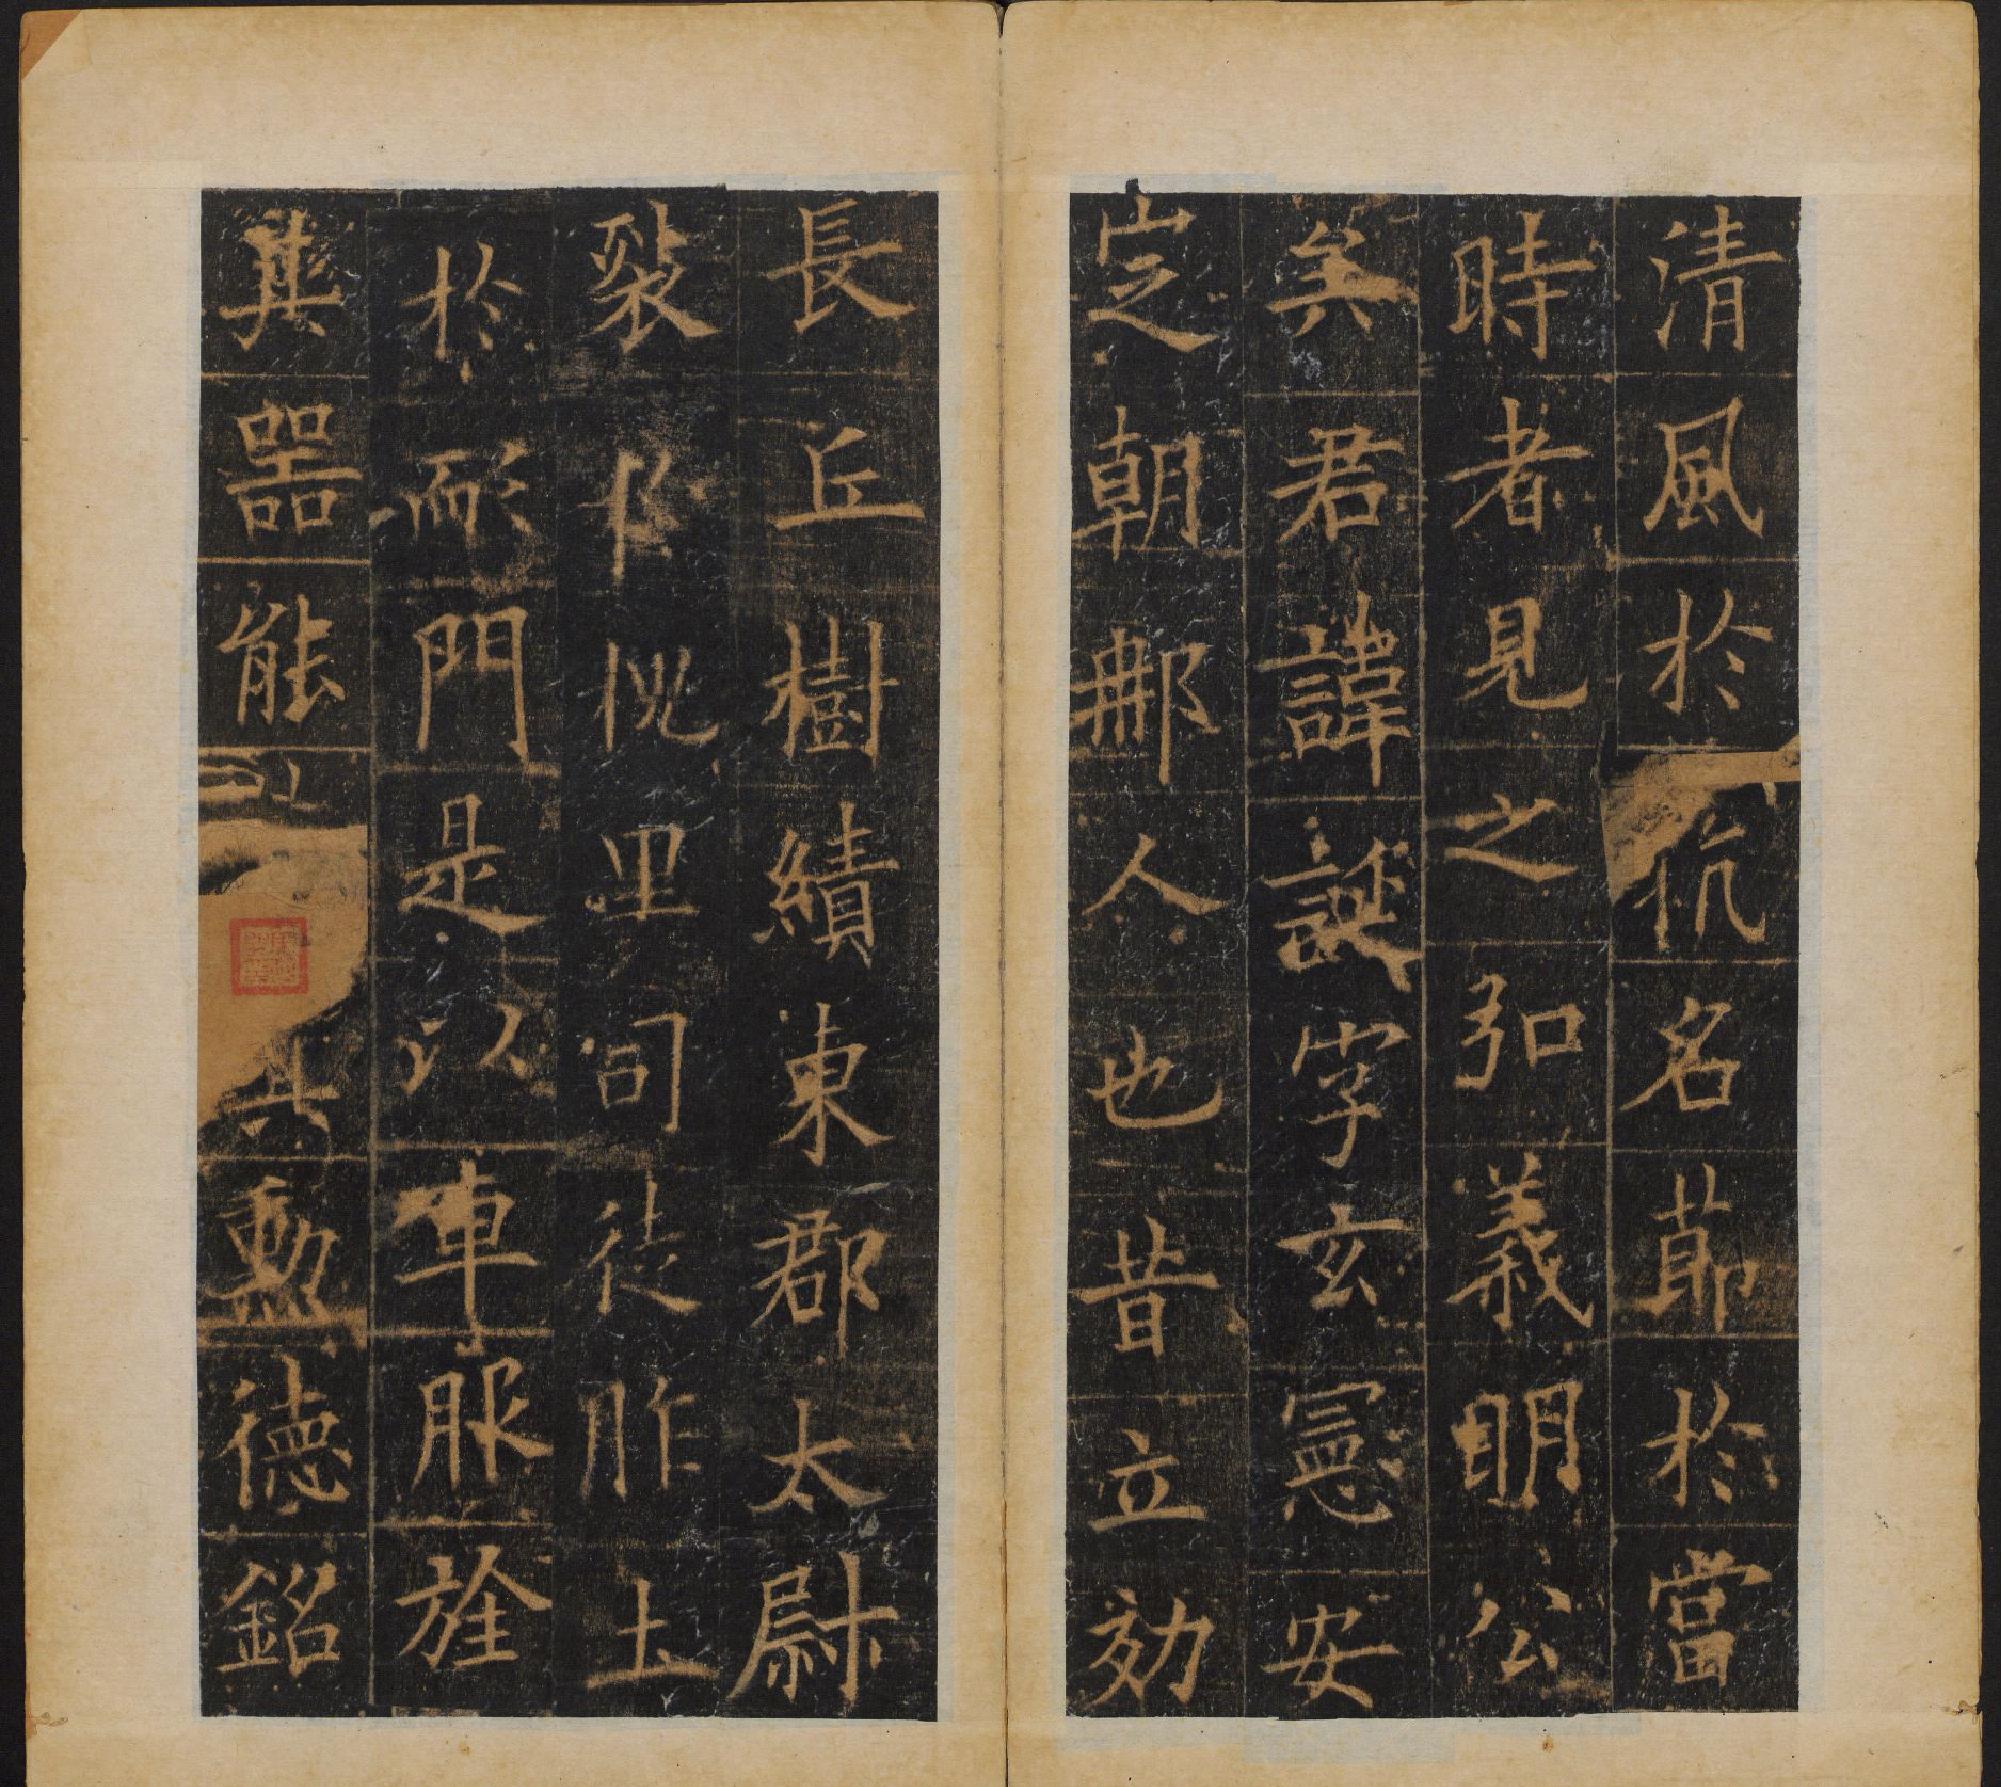 清風於抗名節於當
時者見之弘義明公
矣君諱誕字玄憲安
定朝那人也昔立効
長丘樹績東郡太尉
裂槐里司徒胙土
於耏門是以車服旌
其器能其勳德銘